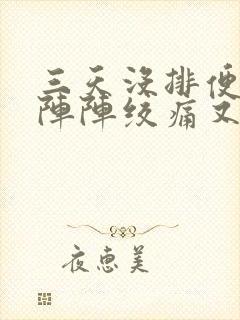 三天没排便
陣陣绞痛又
夜惠美